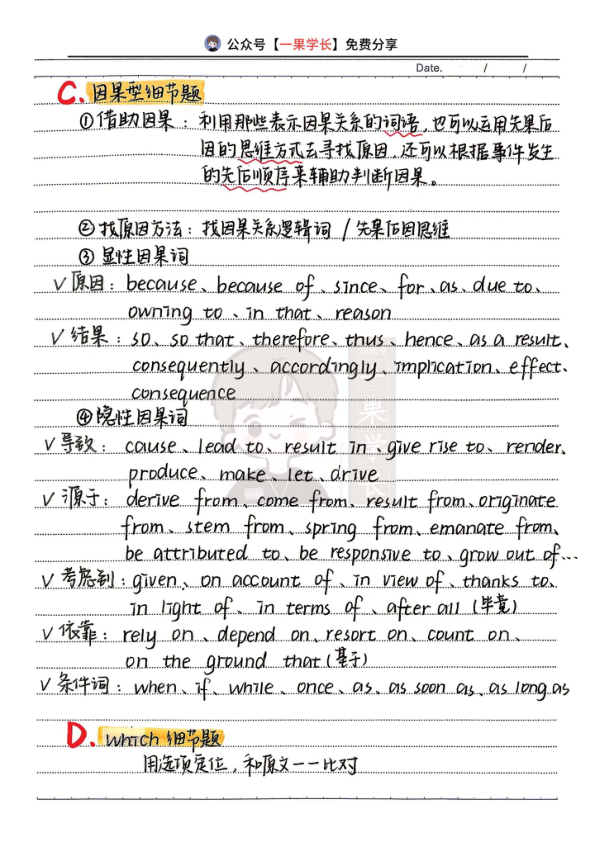 公众号【一果学长】免费分享
Date. / /
C. 因果型细节题
①借助因果：利用那些表示因果关系的词语，也可以运用先果后
因的思维方式去寻找原因，还可以根据事件发生
的先后顺序来辅助判断因果。
②找原因方法：找因果关系逻辑词 / 先果后因思维
③显性因果词
√原因：because、because of、since、for、as、due to、
owning to、in that、reason
√结果：so、so that、therefore、thus、hence、as a result、
consequently、accordingly、implication、effect、
consequence
④隐性因果词
√导致：cause、lead to、result in、give rise to、render、
produce、make、let、drive
√源于：derive from、come from、result from、originate
from、stem from、spring from、emanate from、
be attributed to、be responsive to、grow out of…
√考虑到：given、on account of、in view of、thanks to、
in light of、in terms of、after all（毕竟）
√依靠：rely on、depend on、resort on、count on、
on the ground that（基于）
√条件词：when、if、while、once、as、as soon as、as long as
D. which 细节题
用选项定位，和原文一一比对